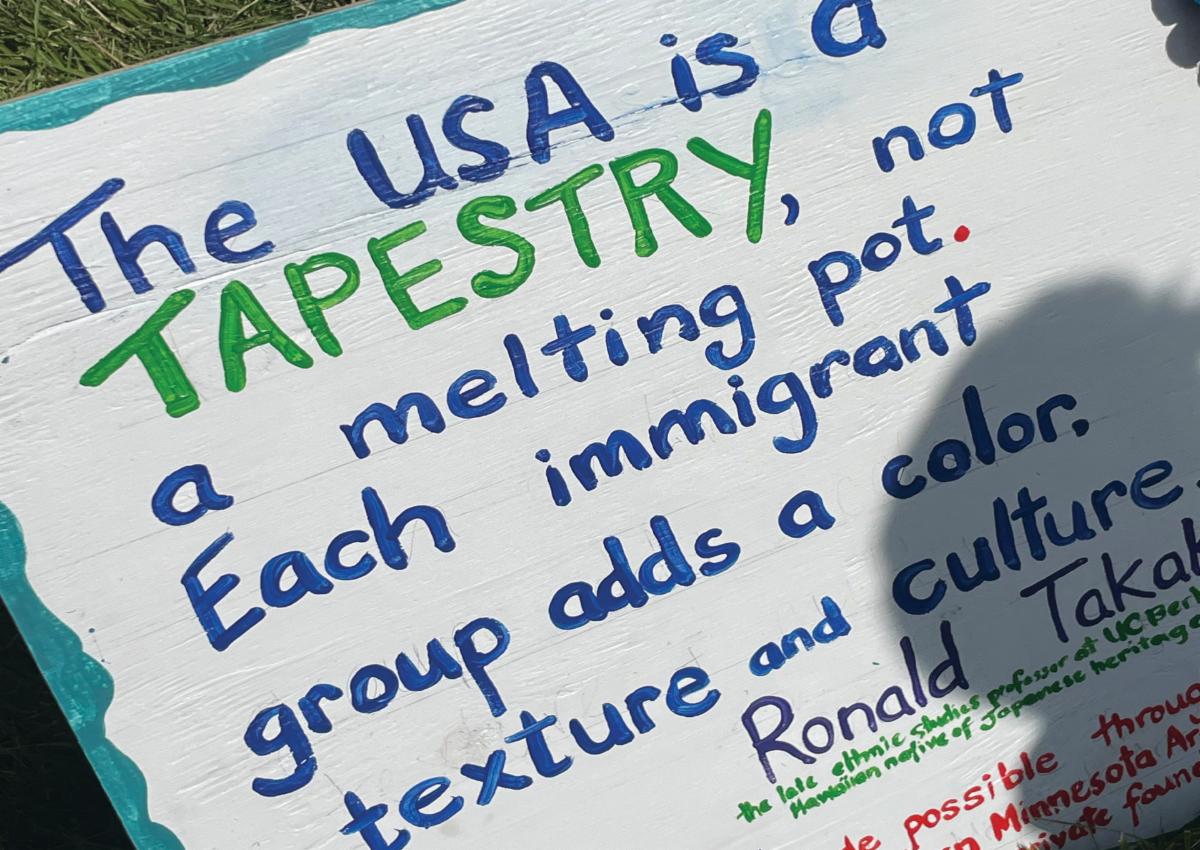 The USA is a
TAPESTRY, not
a melting pot.
Each immigrant
group adds a color,
texture and culture.
Ronald
the late ethnic studies professor at UC
Hawaiian native of Japanese heritage
possible
Minnesota